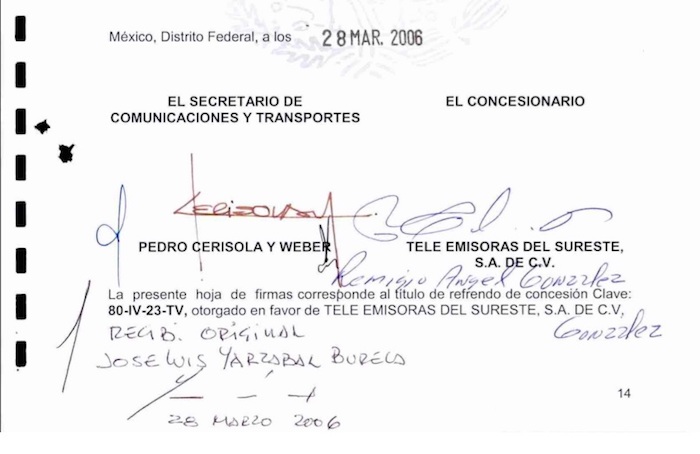 México, Distrito Federal, a los 28 MAR. 2006
EL SECRETARIO DE
COMUNICACIONES Y TRANSPORTES
EL CONCESIONARIO
CERISOLA
PEDRO CERISOLA Y WEBER
TELE EMISORAS DEL SURESTE,
S.A. DE C.V.
Remigio Angel Gonzalez
Gonzalez
La presente hoja de firmas corresponde al título de refrendo de concesión Clave:
80-IV-23-TV, otorgado en favor de TELE EMISORAS DEL SURESTE, S.A. DE C.V,
RECIBI ORIGINAL
JOSE LUIS YARZABAL BURELA
28 MARZO 2006
14